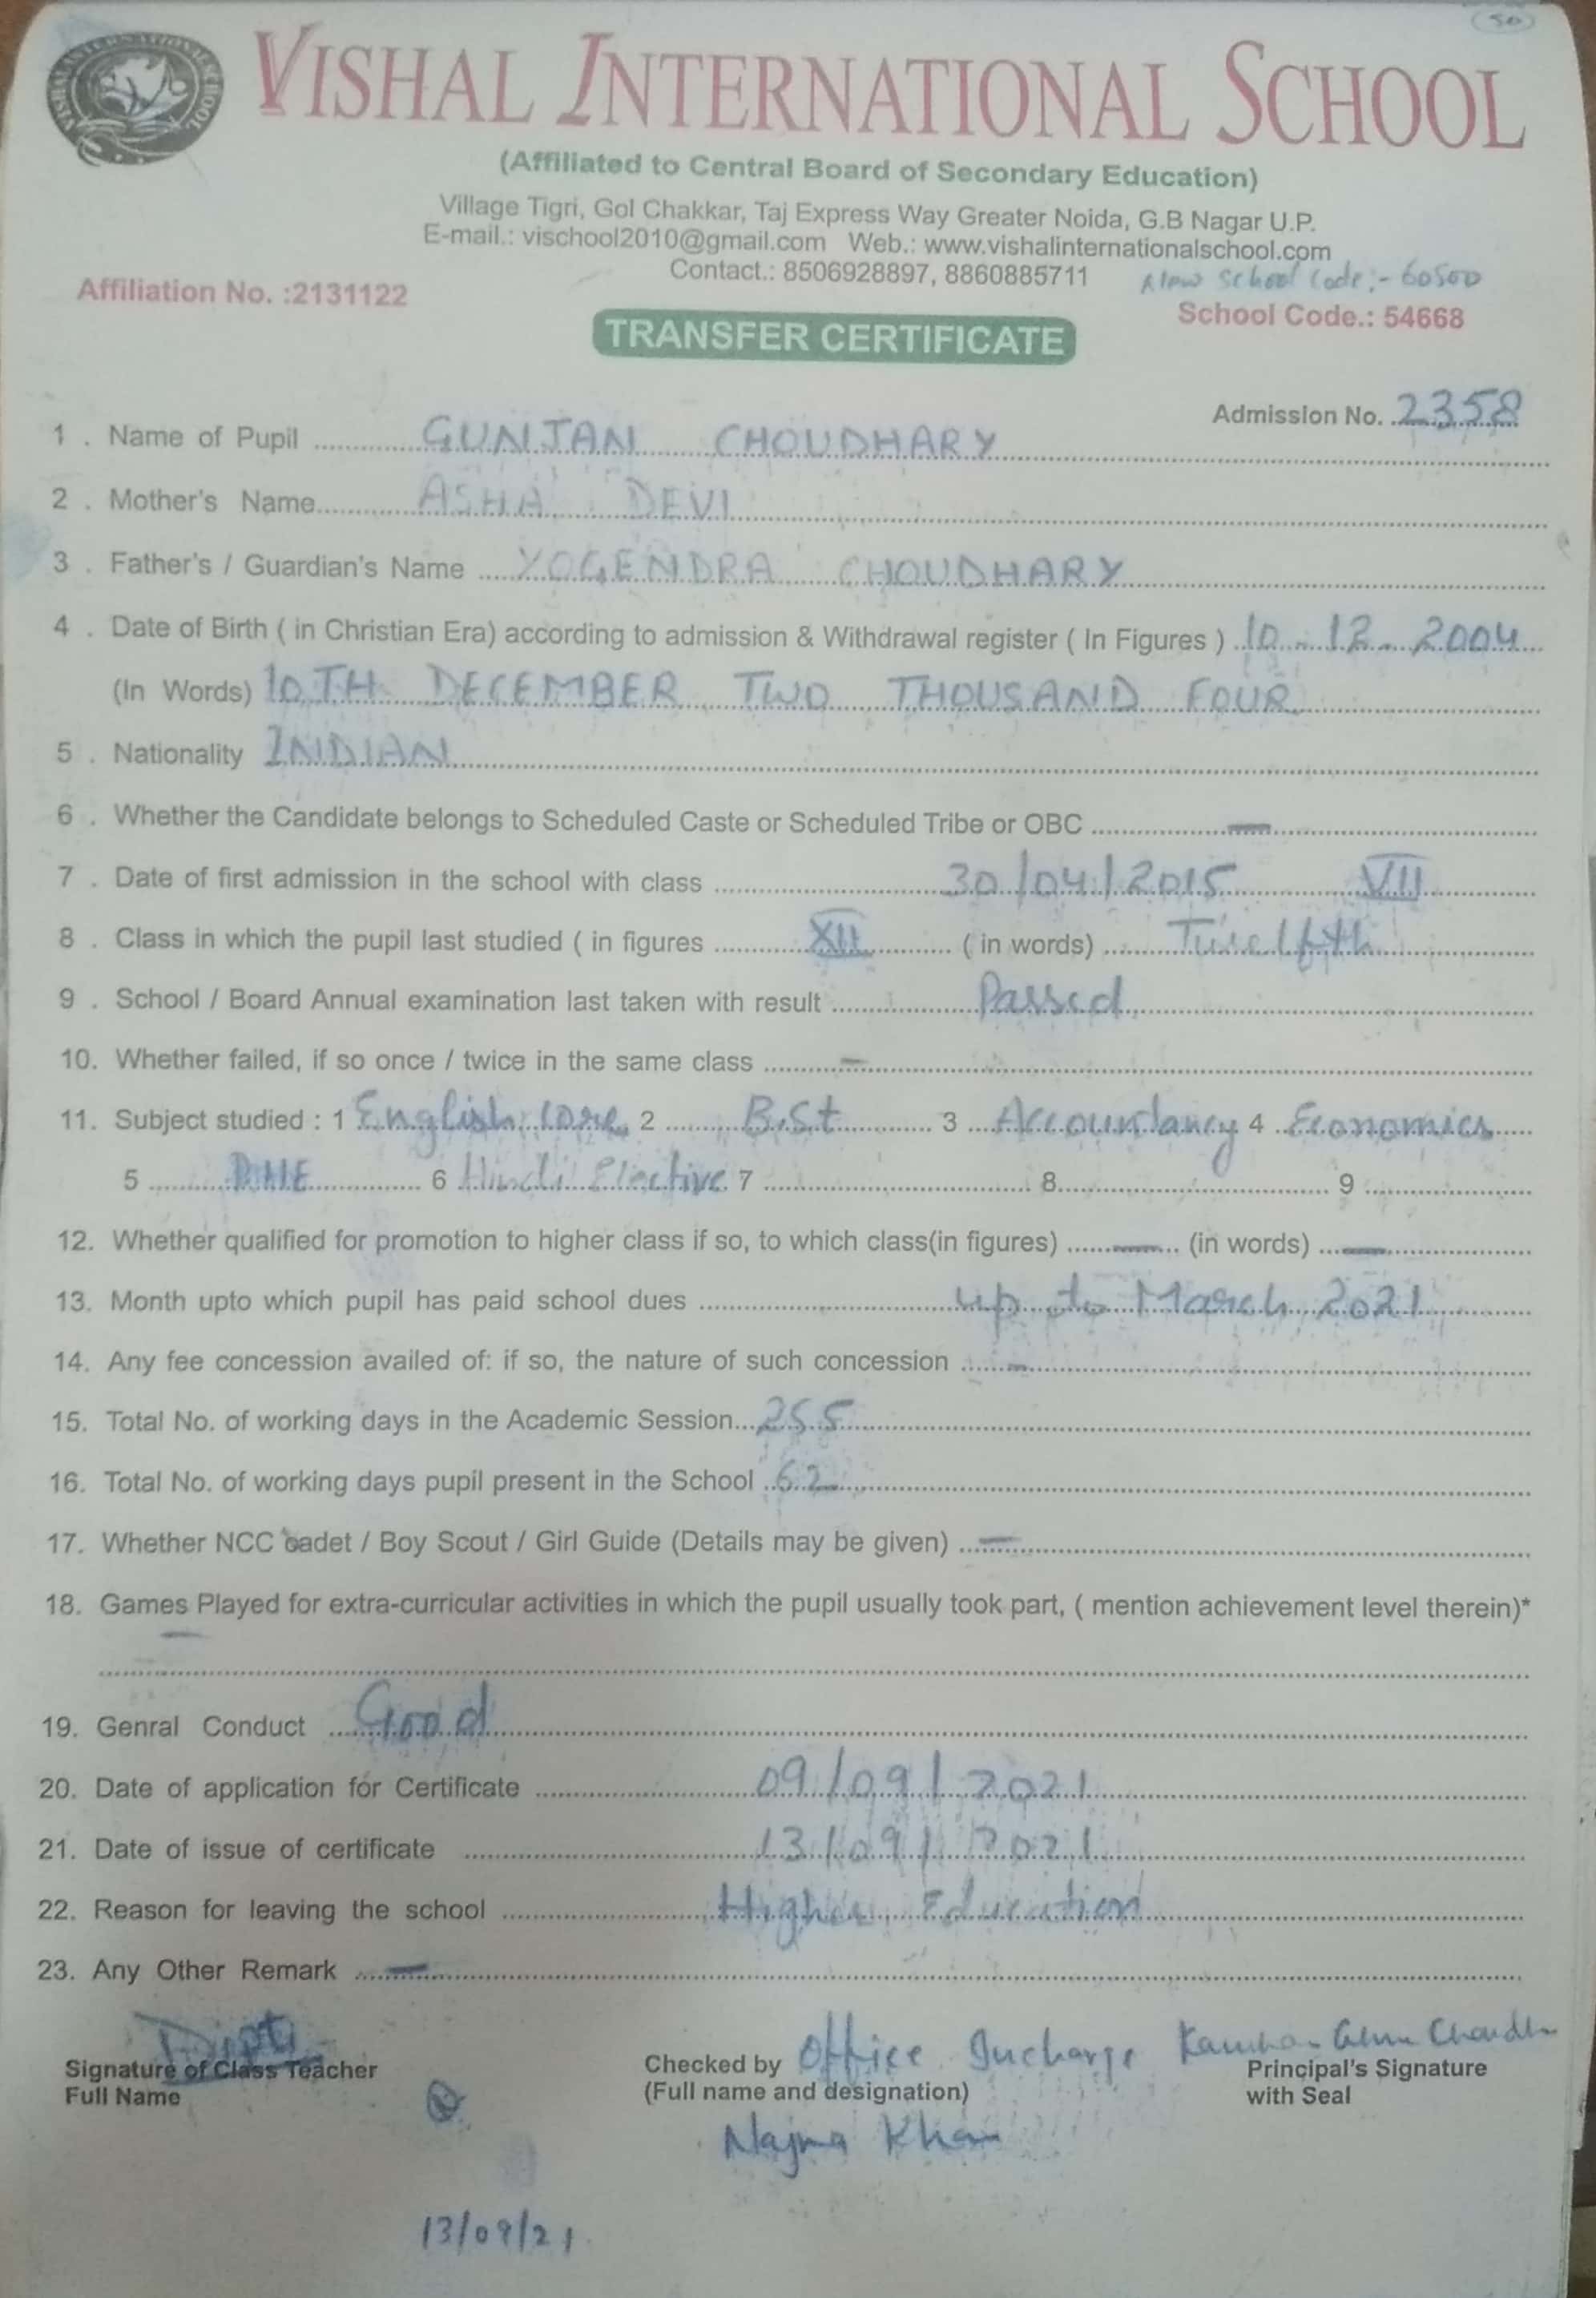 50
VISHAL INTERNATIONAL SCHOOL
(Affiliated to Central Board of Secondary Education)
Village Tigri, Gol Chakkar, Taj Express Way Greater Noida, G.B Nagar U.P.
E-mail.: vischool2010@gmail.com Web.: www.vishalinternationalschool.com
Contact.: 8506928897, 8860885711 New School Code:- 60500
Affiliation No. :2131122 School Code.: 54668
TRANSFER CERTIFICATE
Admission No. 2358
1 . Name of Pupil GUNJAN CHOUDHARY
2 . Mother's Name ASHA DEVI
3 . Father's / Guardian's Name YOGENDRA CHOUDHARY
4 . Date of Birth ( in Christian Era) according to admission & Withdrawal register ( In Figures ) 10-12-2004
(In Words) 10TH DECEMBER TWO THOUSAND FOUR
5 . Nationality INDIAN
6 . Whether the Candidate belongs to Scheduled Caste or Scheduled Tribe or OBC —
7 . Date of first admission in the school with class 30/04/2015 VII
8 . Class in which the pupil last studied ( in figures XII ( in words) Twelfth
9 . School / Board Annual examination last taken with result Passed
10. Whether failed, if so once / twice in the same class —
11. Subject studied : 1 English core 2 B.St 3 Accountancy 4 Economics
5 PHE 6 Hindi Elective 7 8 9
12. Whether qualified for promotion to higher class if so, to which class(in figures) — (in words) —
13. Month upto which pupil has paid school dues up to March 2021
14. Any fee concession availed of: if so, the nature of such concession —
15. Total No. of working days in the Academic Session 255
16. Total No. of working days pupil present in the School 62
17. Whether NCC cadet / Boy Scout / Girl Guide (Details may be given) —
18. Games Played for extra-curricular activities in which the pupil usually took part, ( mention achievement level therein)*
—
19. Genral Conduct Good
20. Date of application for Certificate 09/09/2021
21. Date of issue of certificate 13/09/2021
22. Reason for leaving the school Higher Education
23. Any Other Remark —
Dipti Office Incharge
Signature of Class Teacher Checked by Principal's Signature
Full Name (Full name and designation) with Seal
Najma Khan
13/09/21